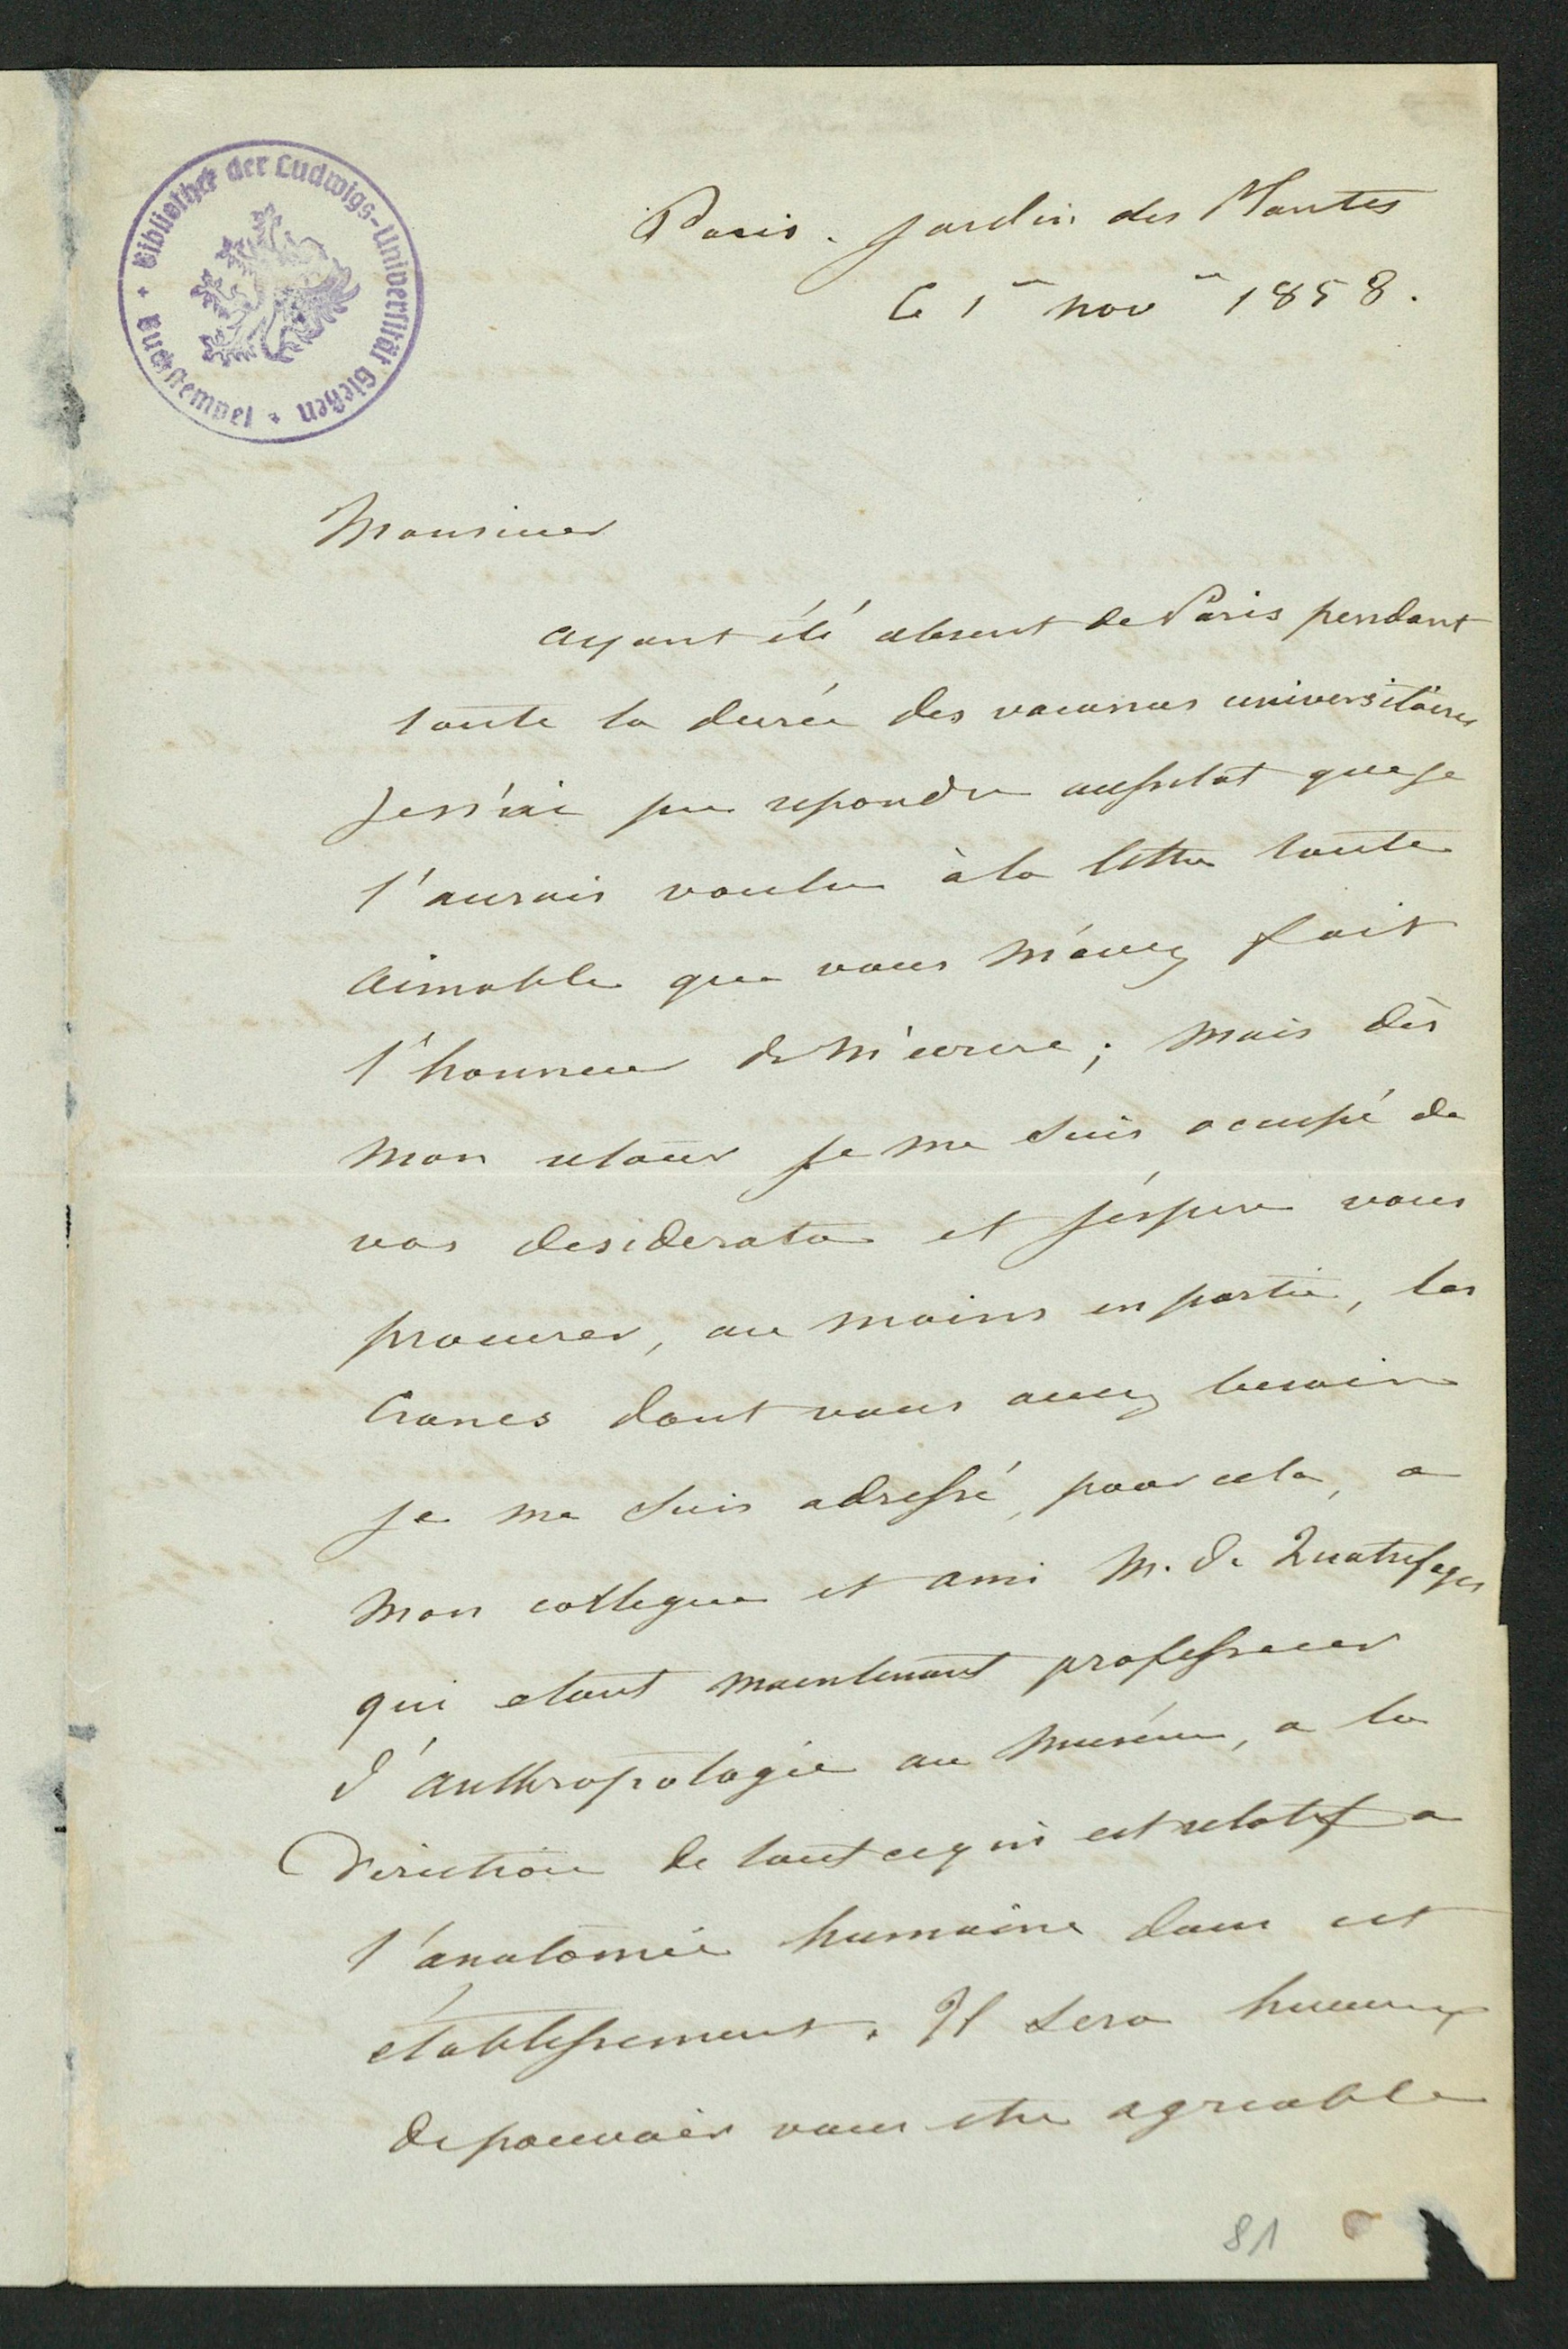 Bibliothek der Ludwigs-Universität Gießen
Buchstempel
Paris. Jardin des Plantes
Ce 1er novre 1858.
Monsieur
ayant été absent de Paris pendant
toute la durée des vacances universitaires
je n'ai pu repondre aussitot que je
l'aurais voulu à la lettre toute
aimable que vous m'avez fait
l'honneur de m'ecrire; mais dès
mon retour je me suis occupé de
vos desiderata et j'espere vous
procurer, au moins en partie, les
cranes dont vous avez besoin
je me suis adressé, pour cela, a
mon collegue et ami M. de Quatrefages
qui etant maintenant professeur
d'anthropologie au muséum, a la
Direction de tout ce qui est relatif a
l'anatomie humaine dans cet
établissement. Il sera heureux
de pouvoir vous etre agreable
81